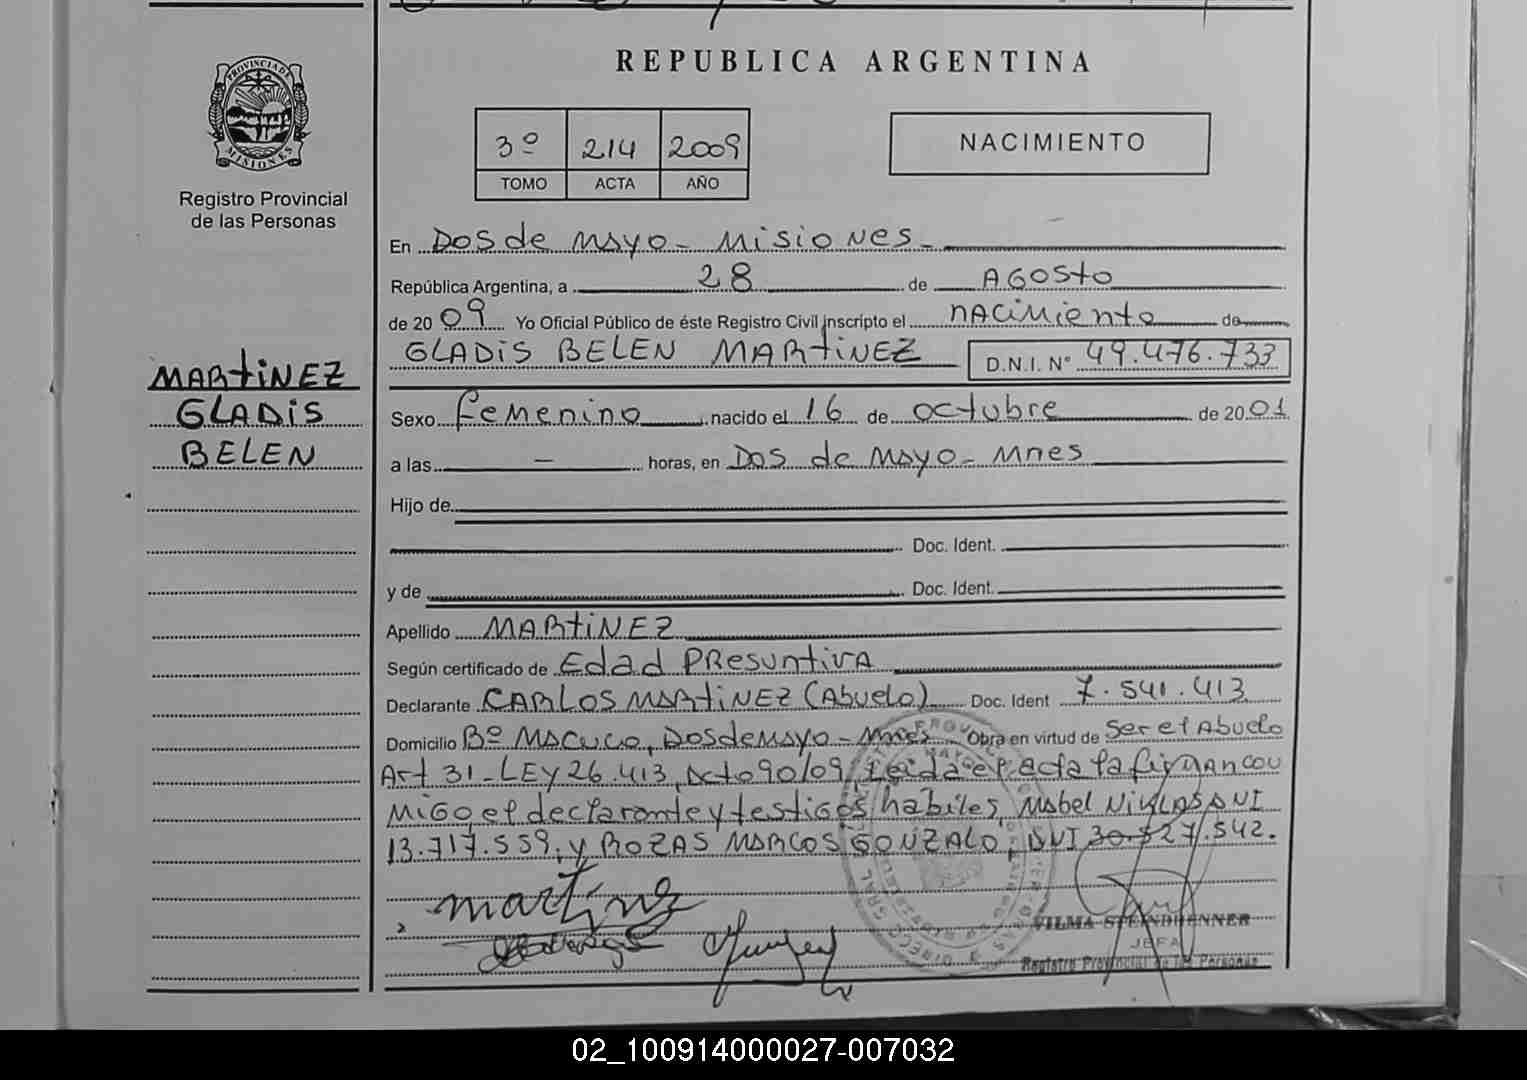 REPUBLICA ARGENTINA
PROVINCIA DE MISIONES
Registro Provincial
de las Personas
3º 214 2009
TOMO ACTA AÑO
NACIMIENTO
En Dos de Mayo - Misiones -
República Argentina, a 28 de Agosto
de 2009 Yo Oficial Público de éste Registro Civil inscripto el nacimiento de
GLADIS BELEN MARTINEZ D.N.I. Nº 49.476.733
MARTINEZ
GLADIS
BELEN
Sexo Femenino nacido el 16 de octubre de 2001
a las — horas, en Dos de Mayo - Mnes
Hijo de
Doc. Ident.
y de Doc. Ident.
Apellido MARTINEZ
Según certificado de Edad Presuntiva
Declarante CARLOS MARTINEZ (Abuelo) Doc. Ident 7.541.413
Domicilio Bº Macuco, Dos de Mayo - Mnes Obra en virtud de Ser el Abuelo
Art 31 - LEY 26.413, Dcto 90/09, Leida el acta la firman con
migo el declarante y testigos habiles, Mabel DNI
13.717.559, y ROZAS MARCOS GONZALO, DNI 30.527.542.
martinez
VILMA STEINDRENNER
JEFA
Registro Provincial de las Personas
02_100914000027-007032